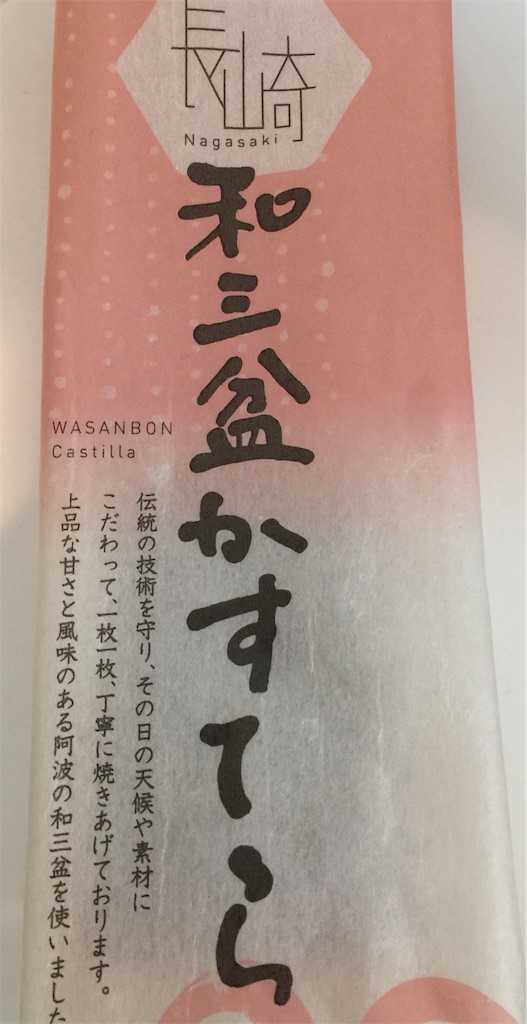 長崎
Nagasaki
和三盆かすてら
WASANBON
Castilla
伝統の技術を守り、その日の天候や素材に
こだわって、一枚一枚、丁寧に焼きあげております。
上品な甘さと風味のある阿波の和三盆を使いました